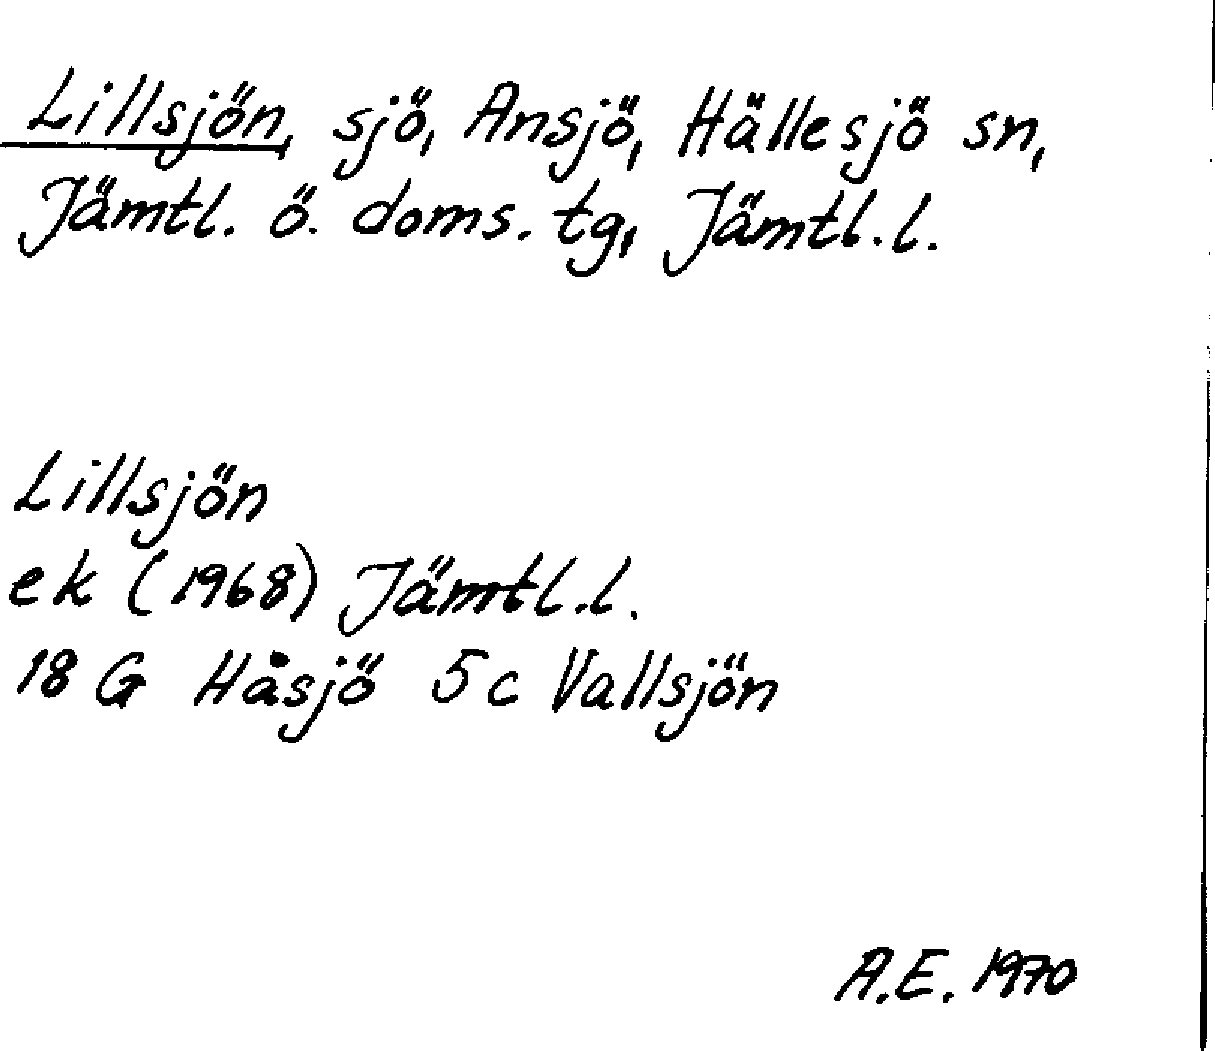 Lillsjön, sjö, Ansjö, Hällesjö sn,
Jämtl. ö. doms. tg, Jämtl. l.
Lillsjön
ek (1968) Jämtl. l.
18 G Håsjö 5 c Vallsjön
A.E. 1970